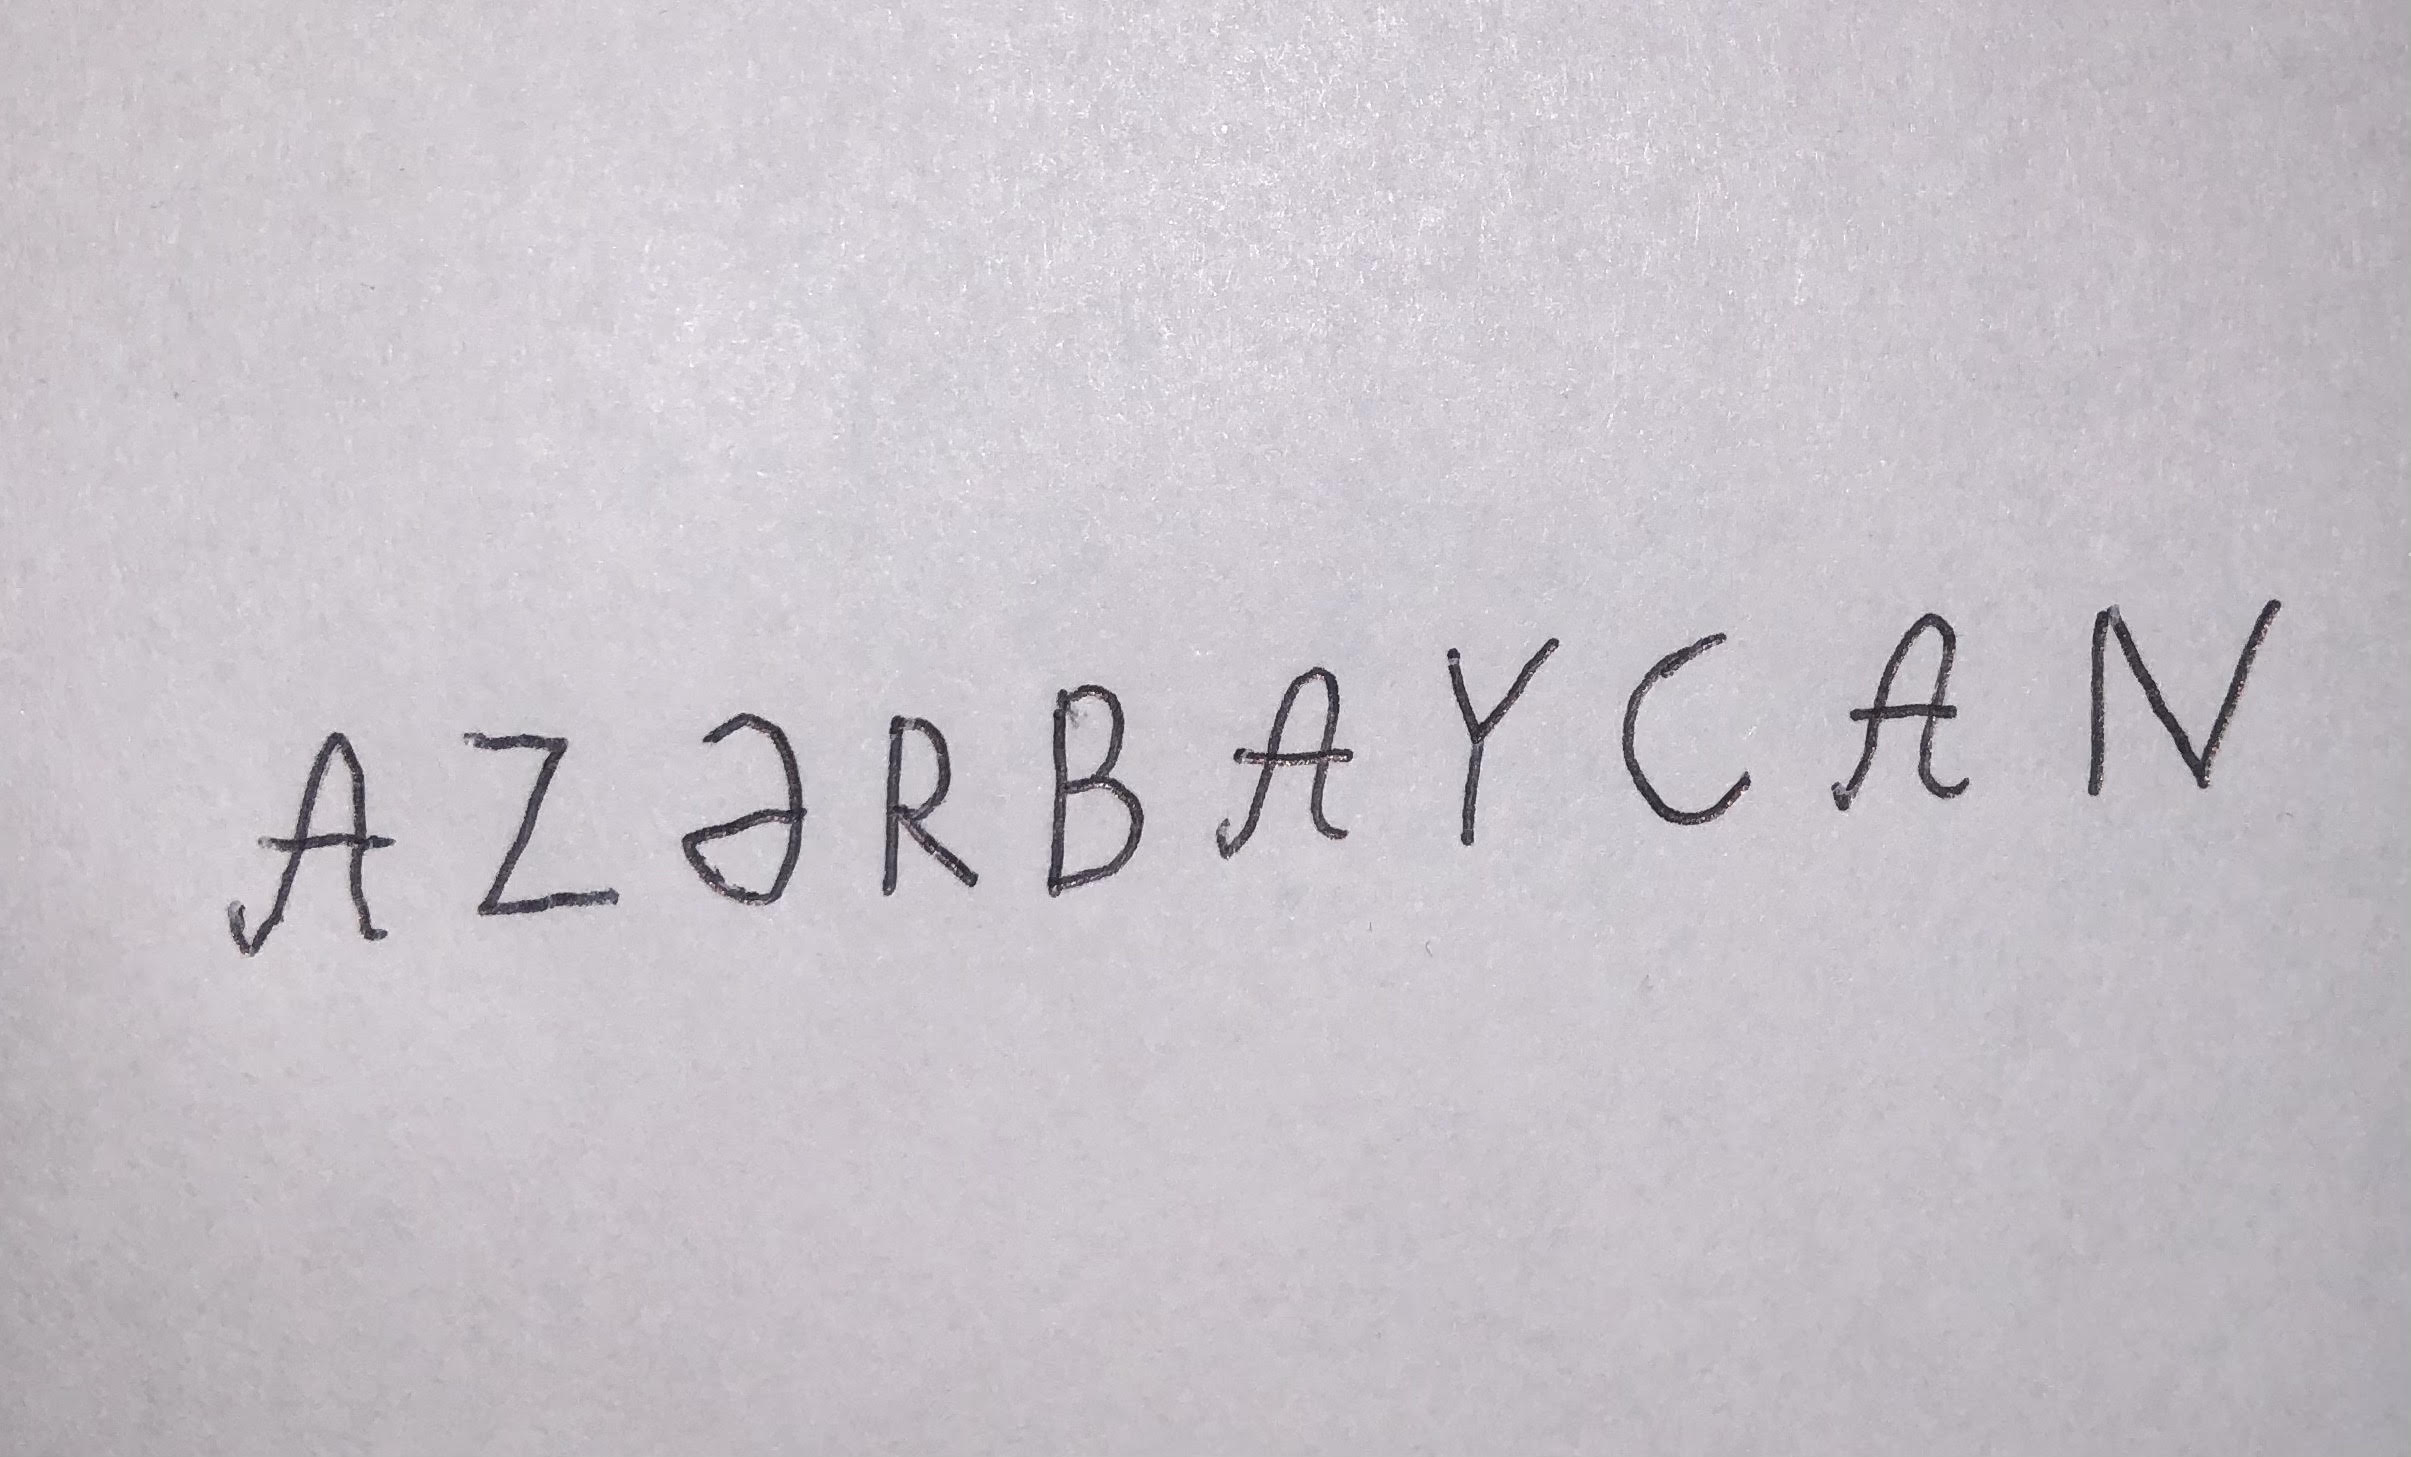 AZƏRBAYCAN